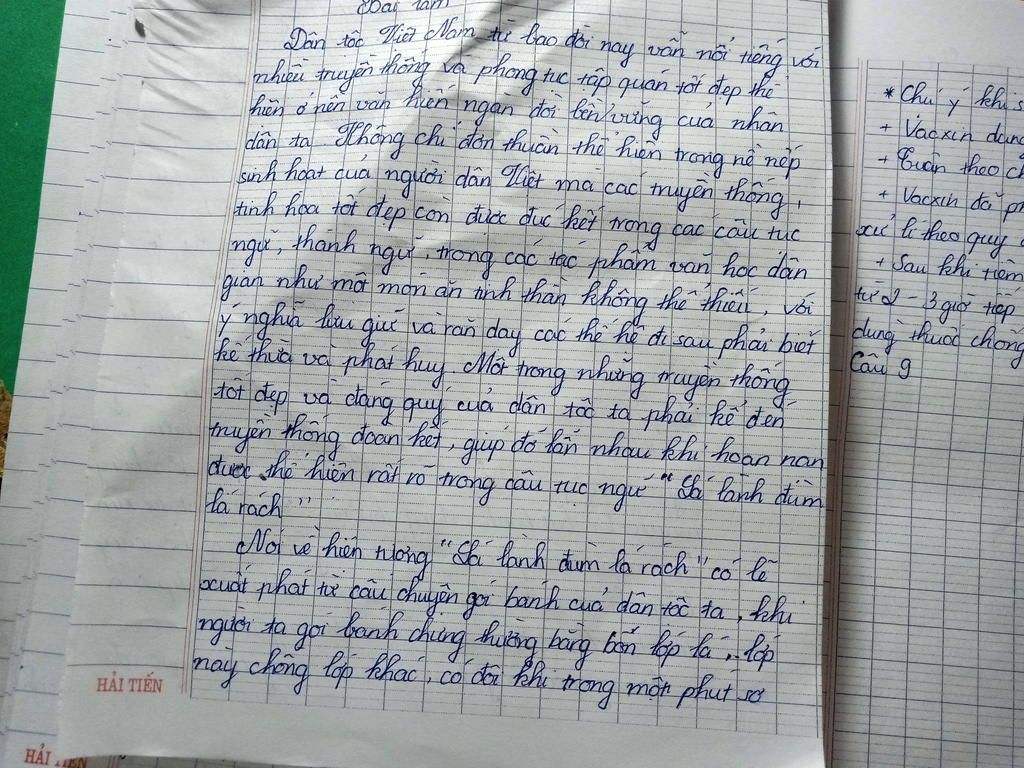 Bài làm
Dân tộc Việt Nam từ bao đời nay vẫn nổi tiếng với
nhiều truyền thống và phong tục tập quán tốt đẹp thể
hiện ở nền văn hiến ngàn đời bền vững của nhân
dân ta. Không chỉ đơn thuần thể hiện trong nề nếp
sinh hoạt của người dân Việt mà các truyền thống,
tinh hoa tốt đẹp còn được đúc kết trong các câu tục
ngữ, thành ngữ, trong các tác phẩm văn học dân
gian như một món ăn tinh thần không thể thiếu, với
ý nghĩa lưu giữ và răn dạy các thế hệ đi sau phải biết
kế thừa và phát huy. Một trong những truyền thống
tốt đẹp và đáng quý của dân tộc ta phải kể đến
truyền thống đoàn kết, giúp đỡ lẫn nhau khi hoạn nạn
được thể hiện rất rõ trong câu tục ngữ "Lá lành đùm
lá rách"
Nói về hiện tượng "Lá lành đùm lá rách" có lẽ
xuất phát từ câu chuyện gói bánh của dân tộc ta, khi
người ta gói bánh chưng thường bằng bốn lớp lá, lớp
này chồng lớp khác, có đôi khi trong một phút sơ
HẢI TIẾN
HẢI TIẾN
* Chú ý khi s
+ Vacxin dùng
+ Tuân theo ch
+ Vacxin đã ph
xử lí theo quy
+ Sau khi tiêm
từ 2-3 giờ tiếp
dùng thuốc chống
Câu 9